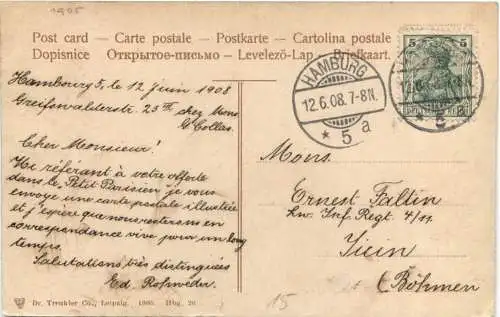 1905
Post card — Carte postale — Postkarte — Cartolina postale
Dopisnice — Открытое-письмо — Levelező-Lap — Briefkaart.
5 5
HAMBURG
12.6.08.7-8N.
* 5 a
Hambourg 5, le 12 juin 1908
Greifswalderstr. 23 II chez Mons.
Collas.
Cher Monsieur!
Me référant à votre offerte
dans le Petit Parisien je vous
envoye une carte postale illustrée
et j'espère que nous resterons en
correspondance vive pour un long
temps.
Salutations très distinguées
Ed. Rohweder.
Mons.
Ernest Faltin
k.w. Inf. Regt. 4/11
Jicin
(Böhmen
15
Dr. Trenkler Co., Leipzig. 1905. Hbg. 20